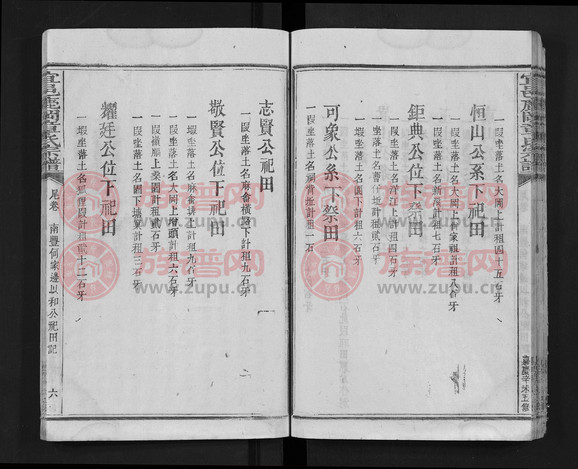 宜邑鹿岡章氏宗譜
嘉慶辛未五修
一段坐落土名大岡上計租四十五石牙
恒山公系下祀田
一段坐落土名大岡上計租八石牙
一段坐落土名新溪計租七石牙
鉅典公位下祭田
一段坐落土名計租四石牙
一段坐落土名曹計租貳石牙
可象公系下祭田
一段坐落土名計租一石
志賢公祀田
一段坐落土名麻下計租九石牙
敬賢公位下祀田
一塅坐落土名麻上計租九石牙
一段坐落土名大岡上計租六石牙
一段上眾園計租貳石牙
一塅坐落土名園下計租三石牙
耀廷公位下祀田
一塅坐落土名計租貳十二石牙
宜邑鹿岡章氏宗譜
尾卷
南豐何家邊以和公祀田記
六
族谱网
www.zupu.cn
族谱网
www.zupu.cn